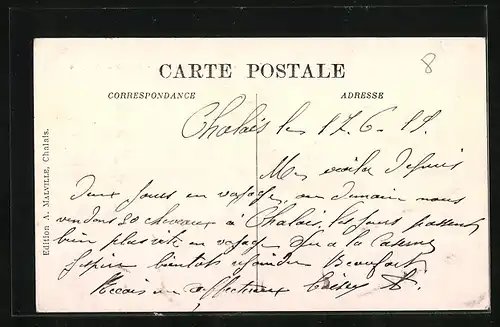 8
CARTE POSTALE
CORRESPONDANCE
ADRESSE
Edition A. MALVILLE, Chalais.
Chalais le 17.6.19.
Me voila depuis
deux jours en voyage, ou demain nous
vendons 20 chevaux à Chalais, les jours passent
bien plus vite en voyage qu a la caserne
J'espère bientôt rejoindre Beaufort
Recois un affectueux baiser